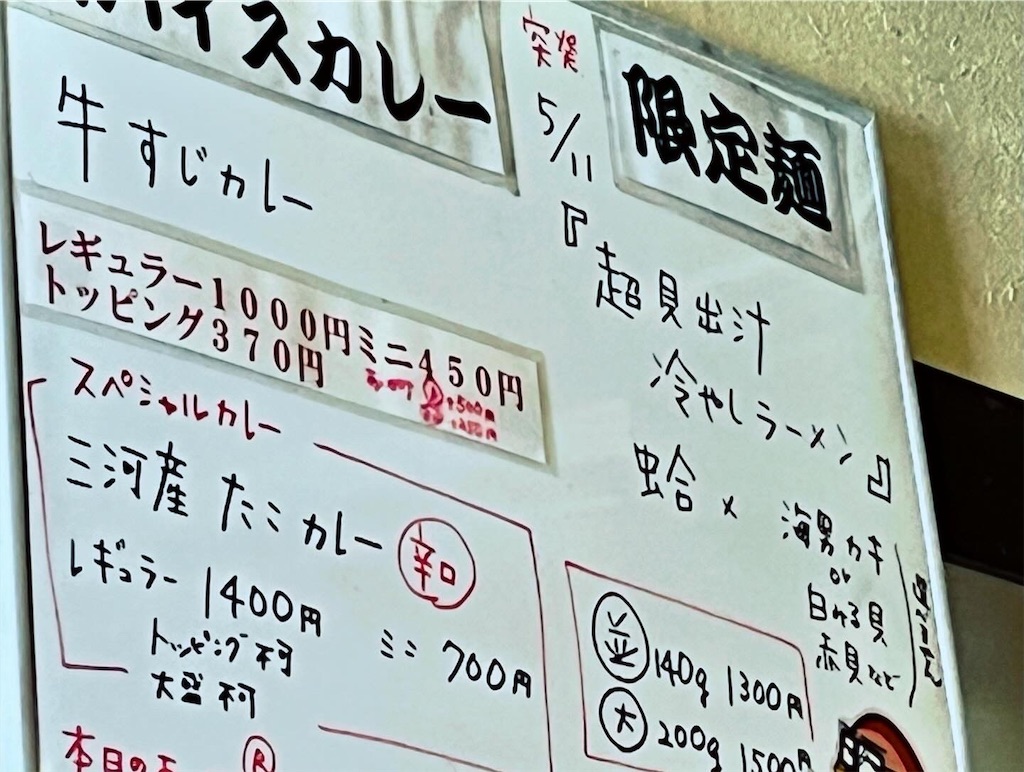 パイスカレー
牛すじカレー
レギュラー1000円ミニ450円
トッピング370円
スペシャルカレー
三河産 たこカレー 辛口
レギュラー 1400円
ミニ 700円
トッピング不可
大盛不可
本日の
限定麺
5/11
『超貝出汁
冷やしラーメン』
蛤 × 海男カキ
or
白みる貝
赤貝など
並 140g 1300円
大 200g 1500円